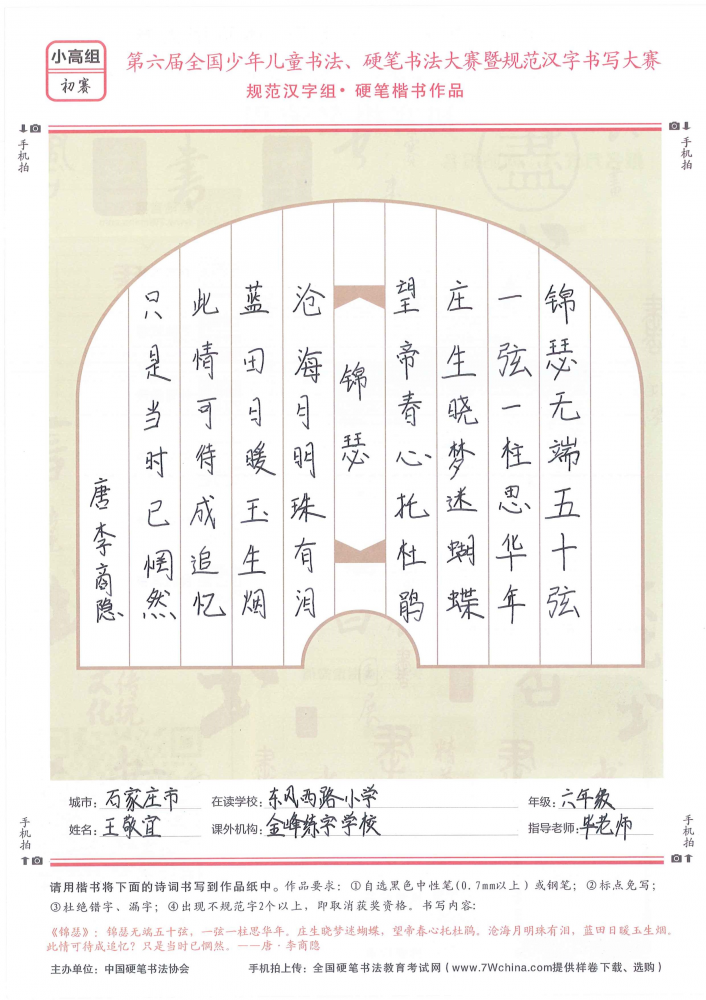 小高组
初赛
第六届全国少年儿童书法、硬笔书法大赛暨规范汉字书写大赛
规范汉字组·硬笔楷书作品
手机拍
手机拍
锦瑟无端五十弦
一弦一柱思华年
庄生晓梦迷蝴蝶
望帝春心托杜鹃
锦瑟
沧海月明珠有泪
蓝田日暖玉生烟
此情可待成追忆
只是当时已惘然
唐李商隐
城市：石家庄市 在读学校：东风西路小学 年级：六年级
姓名：王敬宜 课外机构：金峰练字学校 指导老师：毕老师
手机拍
手机拍
请用楷书将下面的诗词书写到作品纸中。作品要求：①自选黑色中性笔(0.7mm以上)或钢笔；②标点免写；
③杜绝错字、漏字；④出现不规范字2个以上，即取消获奖资格。书写内容：
《锦瑟》：锦瑟无端五十弦，一弦一柱思华年。庄生晓梦迷蝴蝶，望帝春心托杜鹃。沧海月明珠有泪，蓝田日暖玉生烟。
此情可待成追忆？只是当时已惘然。——唐·李商隐
主办单位：中国硬笔书法协会 手机拍上传：全国硬笔书法教育考试网（www.7Wchina.com提供样卷下载、选购）